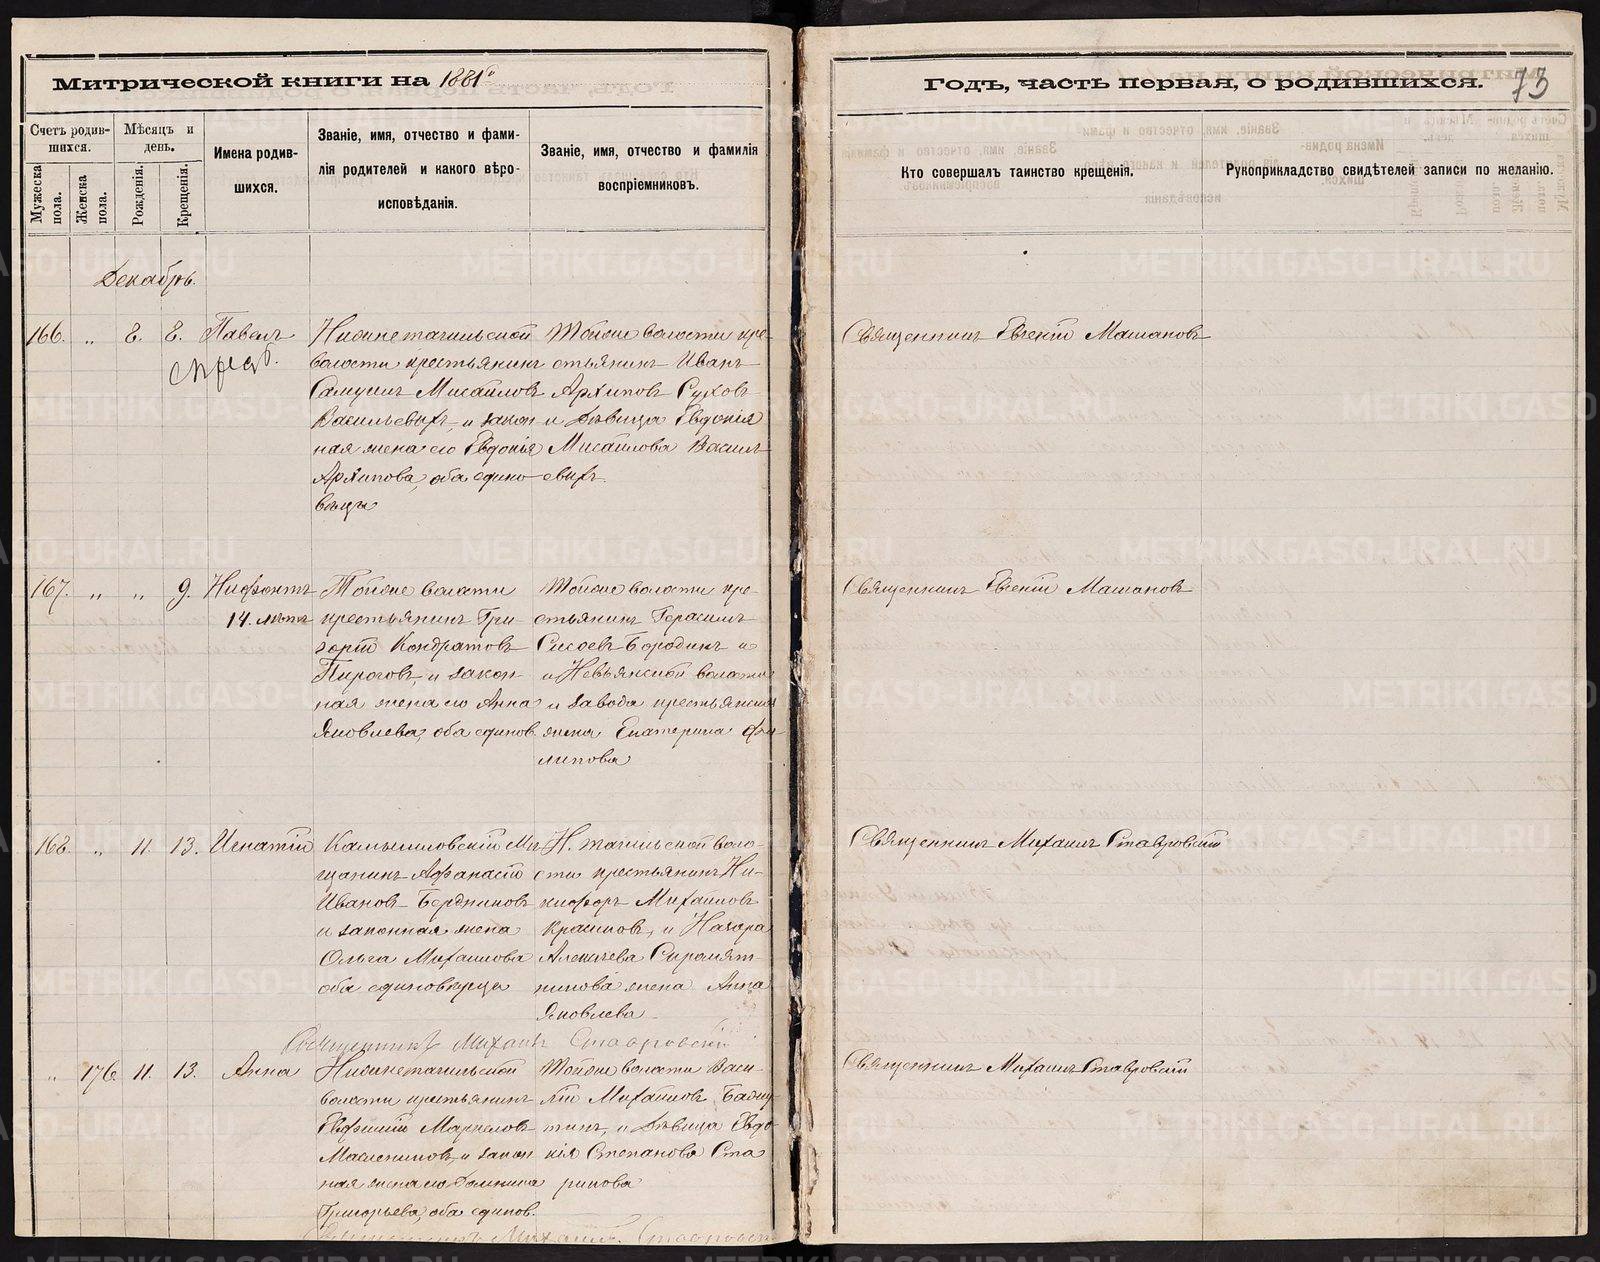 Митрической книги на 1881й
Годъ, часть первая, о родившихся. 73
Счетъ родив-
шихся.
Мужеска
пола.
Женска
пола.
Мѣсяцъ и
день.
Рожденія.
Крещенія.
Имена родив-
шихся.
Званіе, имя, отчество и фами-
лія родителей и какого вѣро-
исповѣданія.
Званіе, имя, отчество и фамилія
воспріемниковъ.
Кто совершалъ таинство крещенія.
Рукоприкладство свидѣтелей записи по желанію.
Декабрь.
166. „ 8. 8. Павелъ
Нижнетагильской
волости крестьянинъ
Самуилъ Мисаиловъ
Васильевыхъ, и закон
ная жена его Евдокія
Архипова, оба едино
вѣрцы
Тойже волости кре-
стьянинъ Иванъ
Архиповъ Суховъ
и дѣвица Евдокія
Мисаилова Василь
евыхъ.
Священникъ Евгеній Машановъ
167. „ „ 9. Нифонтъ
14. лѣтъ
Тойже волости
крестьянинъ Гри-
горій Кондратовъ
Пироговъ, и закон-
ная жена его Анна
Яковлева, оба единов.
Тойже волости кре-
стьянинъ Герасимъ
Сысоевъ Бородинъ и
и Невьянской волости
и завода крестьянская
жена Екатерина Фи-
липова
Священникъ Евгеній Машановъ
168. „ 11. 13. Игнатій
Камышловскій Мѣ
щанинъ Афанасій
Ивановъ Бердниковъ
и законная жена
Ольга Михаилова
оба единовѣрца
Н. тагильской воло-
сти крестьянинъ Ни-
кифоръ Михаиловъ
и Назара
Алексѣева Сыромят-
никова жена Анна
Яковлева
Священникъ Михаилъ Ставровскій
Священникъ Михаилъ Ставровскій
„ 176 11. 13. Анна
Нижнетагильской
волости крестьянинъ
Евфимій Маркеловъ
Маслениковъ, и закон
ная жена его Домника
Григорьева, оба единов.
Тойже волости Васи-
лій Михаиловъ
и дѣвица Евдо-
кія Степанова Ста
рикова
Священникъ Михаилъ Ставровскій
Священникъ Михаилъ Ставровскій
METRIKI.GASO-URAL.RU